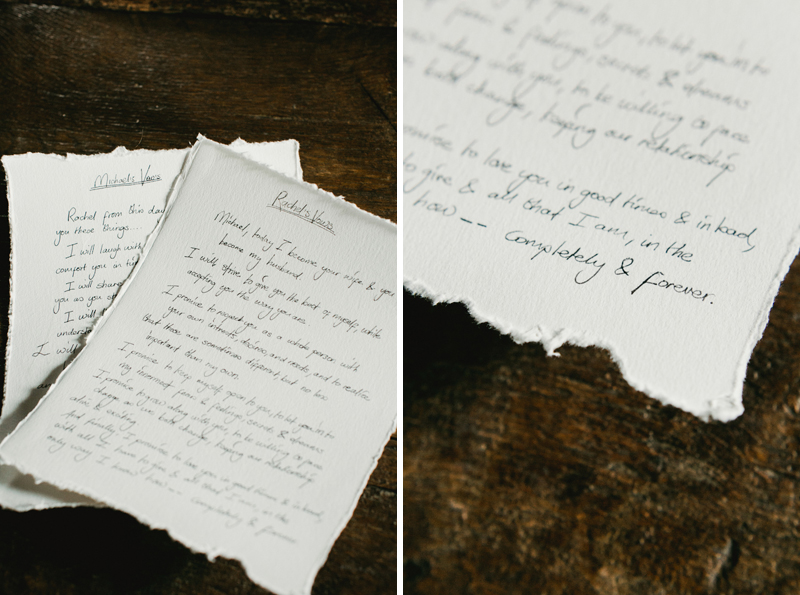 Michael's Vows
Rachel from this day
you these things....
I will laugh with
comfort you in
I will share
you as you
I will
understa
I will
Rachel's Vows
Michael, today I become your wife & you
become my husband.
I will strive to give you the best of myself, while
accepting you the way you are.
I promise to respect you as a whole person with
your own interests, desires, and needs, and to realise
that these are sometimes different, but no less
important than my own.
I promise to keep myself open to you, to let you in to
my innermost fears & feelings, secrets & dreams
I promise to grow along with you, to be willing to
change as we both change, keeping our relationship
alive & exciting.
And finally I promise to love you in good times & in bad,
with all I have to give & all that I am, in the
only way I know how -- completely & forever.
open to you, to let you in to
fears & feelings, secrets & dreams
along with you, to be willing to
both change, keeping our relationship
omise to love you in good times & in bad,
to give & all that I am, in the
how -- completely & forever.